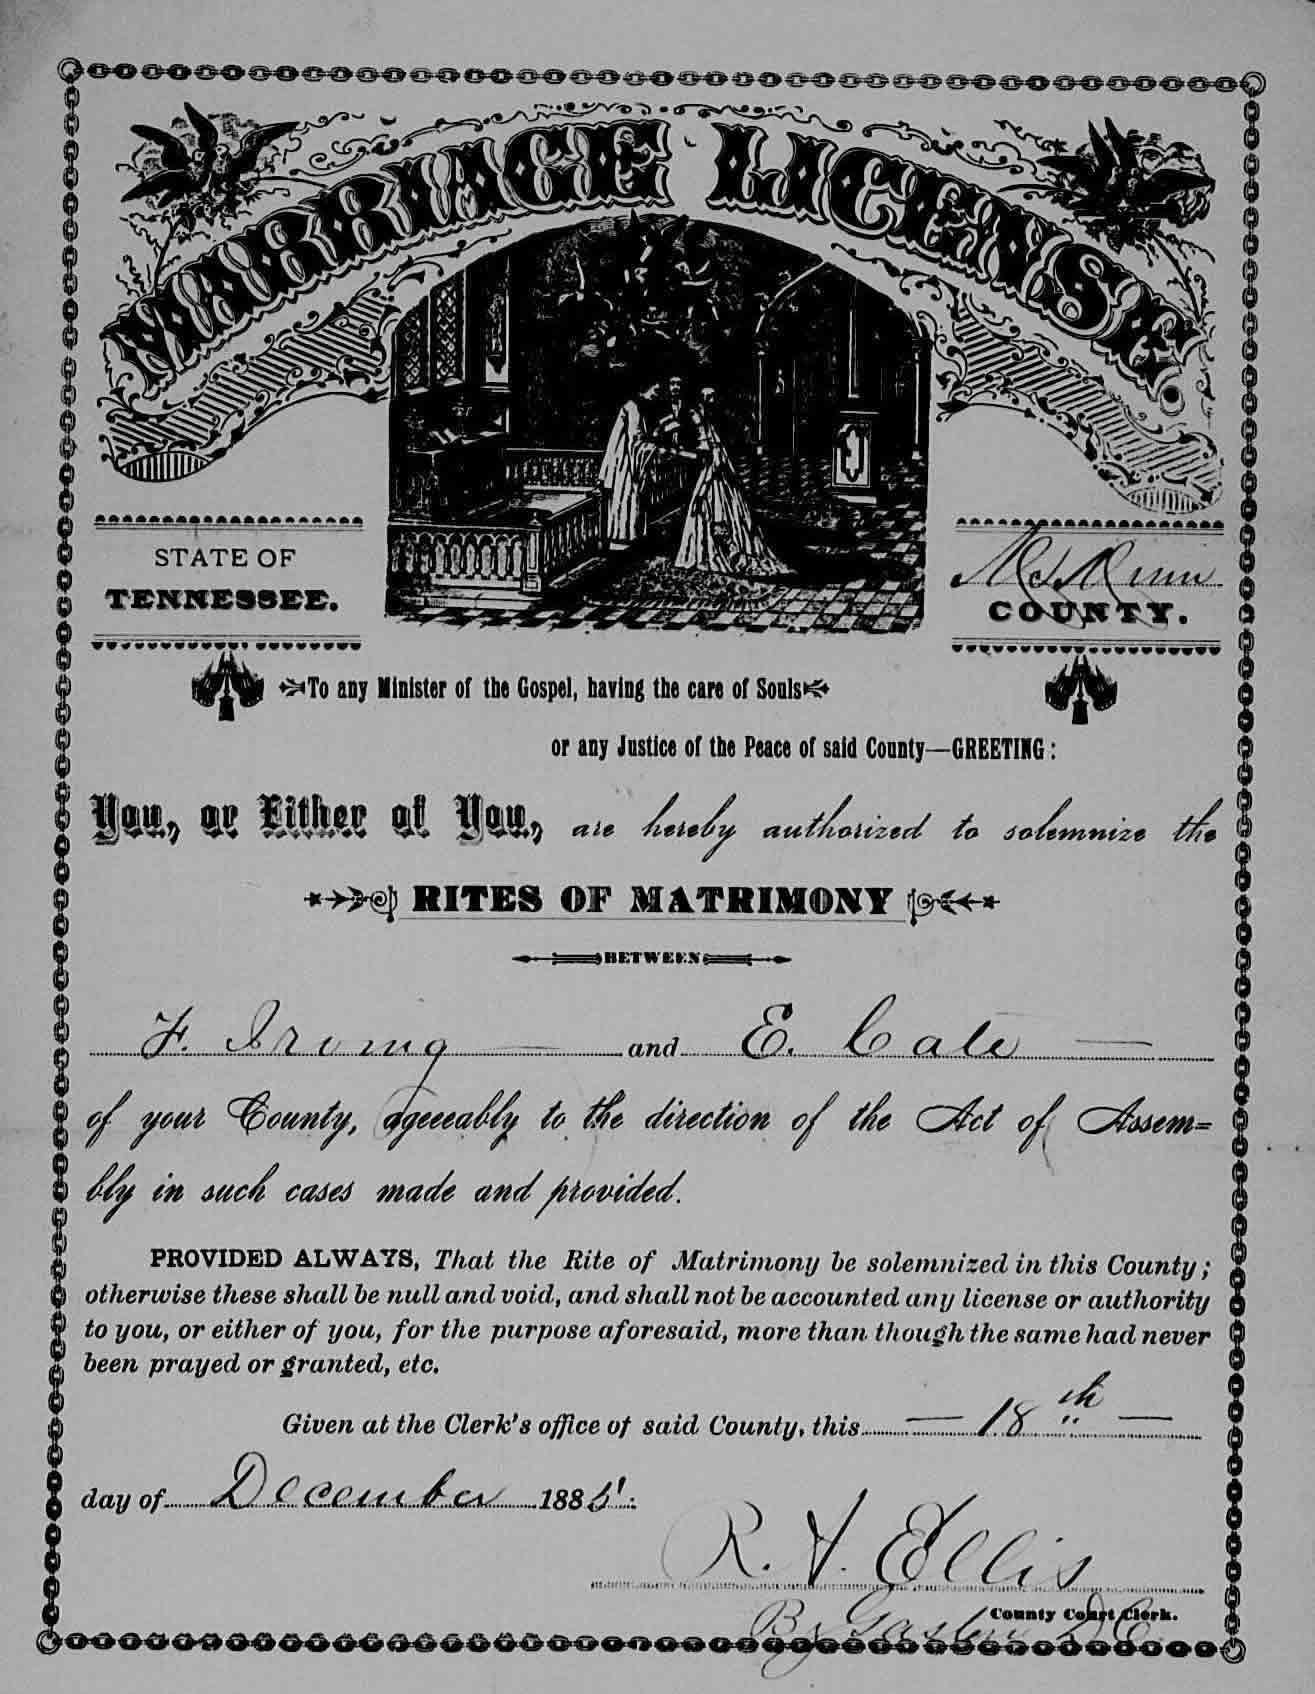 MARRIAGE LICENSE
STATE OF
TENNESSEE.
McMinn
COUNTY.
To any Minister of the Gospel, having the care of Souls
or any Justice of the Peace of said County—GREETING:
You, or Either of You, are hereby authorized to solemnize the
RITES OF MATRIMONY
BETWEEN
F. Irving and E. Cate
of your County, ageeeably to the direction of the Act of Assem=
bly in such cases made and provided.
PROVIDED ALWAYS, That the Rite of Matrimony be solemnized in this County;
otherwise these shall be null and void, and shall not be accounted any license or authority
to you, or either of you, for the purpose aforesaid, more than though the same had never
been prayed or granted, etc.
Given at the Clerk's office of said County, this — 18th —
day of December 1885.
R. A. Ellis
County Court Clerk.
By Gaston D.C.